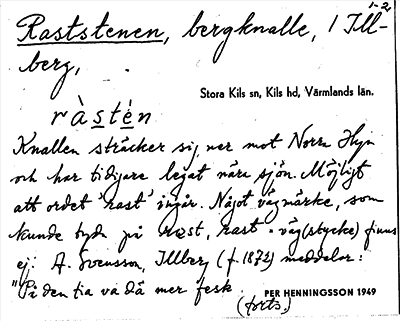 1-2
Raststenen, bergknalle, i Ill-
berg,
Stora Kils sn, Kils hd, Värmlands län.
ràsté̀n
Knallen sträcker sig ner mot Norra Hyn
och har tidigare legat nära sjön. Möjligt
att ordet 'rast' ingår. Något vägmärke, som
kunde tyda på rast, rast-väg(stycke) finns
ej. A. Svensson, Illberg (f. 1872) meddelar:
"På den tia va dä mer fesk
PER HENNINGSSON 1949
(forts.)